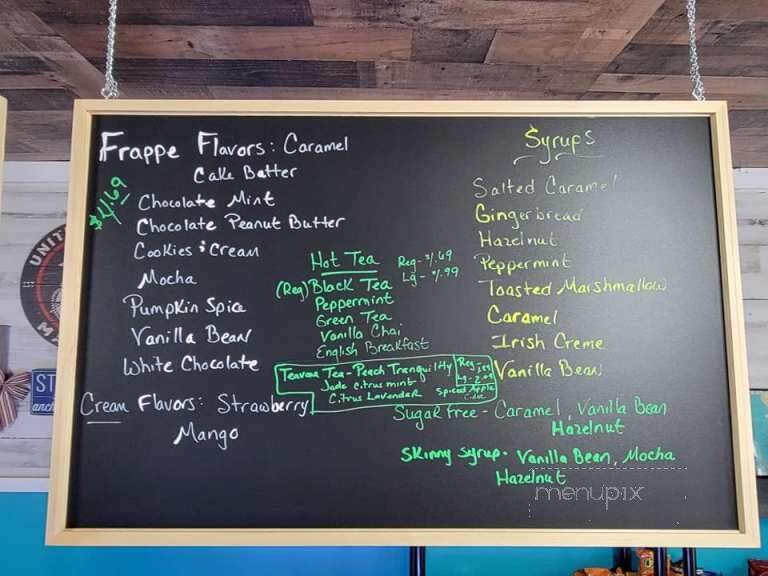 Frappe Flavors: Caramel
Cake Batter
$4.69
Chocolate Mint
Chocolate Peanut Butter
Cookies & Cream
Mocha
Pumpkin Spice
Vanilla Bean
White Chocolate
Cream Flavors: Strawberry
Mango
Hot Tea
Reg-
Lg-
(Reg) Black Tea
Peppermint
Green Tea
Vanilla Chai
English Breakfast
Teavana Tea-Peach Tranquility
Jade Citrus mint
Citrus Lavendar
Reg-
Lg-
Spiced Apple
Syrups
Salted Caramel
Gingerbread
Hazelnut
Peppermint
Toasted Marshmallow
Caramel
Irish Creme
Vanilla Bean
Sugar Free - Caramel, Vanilla Bean
Hazelnut
Skinny Syrup- Vanilla Bean, Mocha
Hazelnut
menupix
UNIT
MA
ST
anch